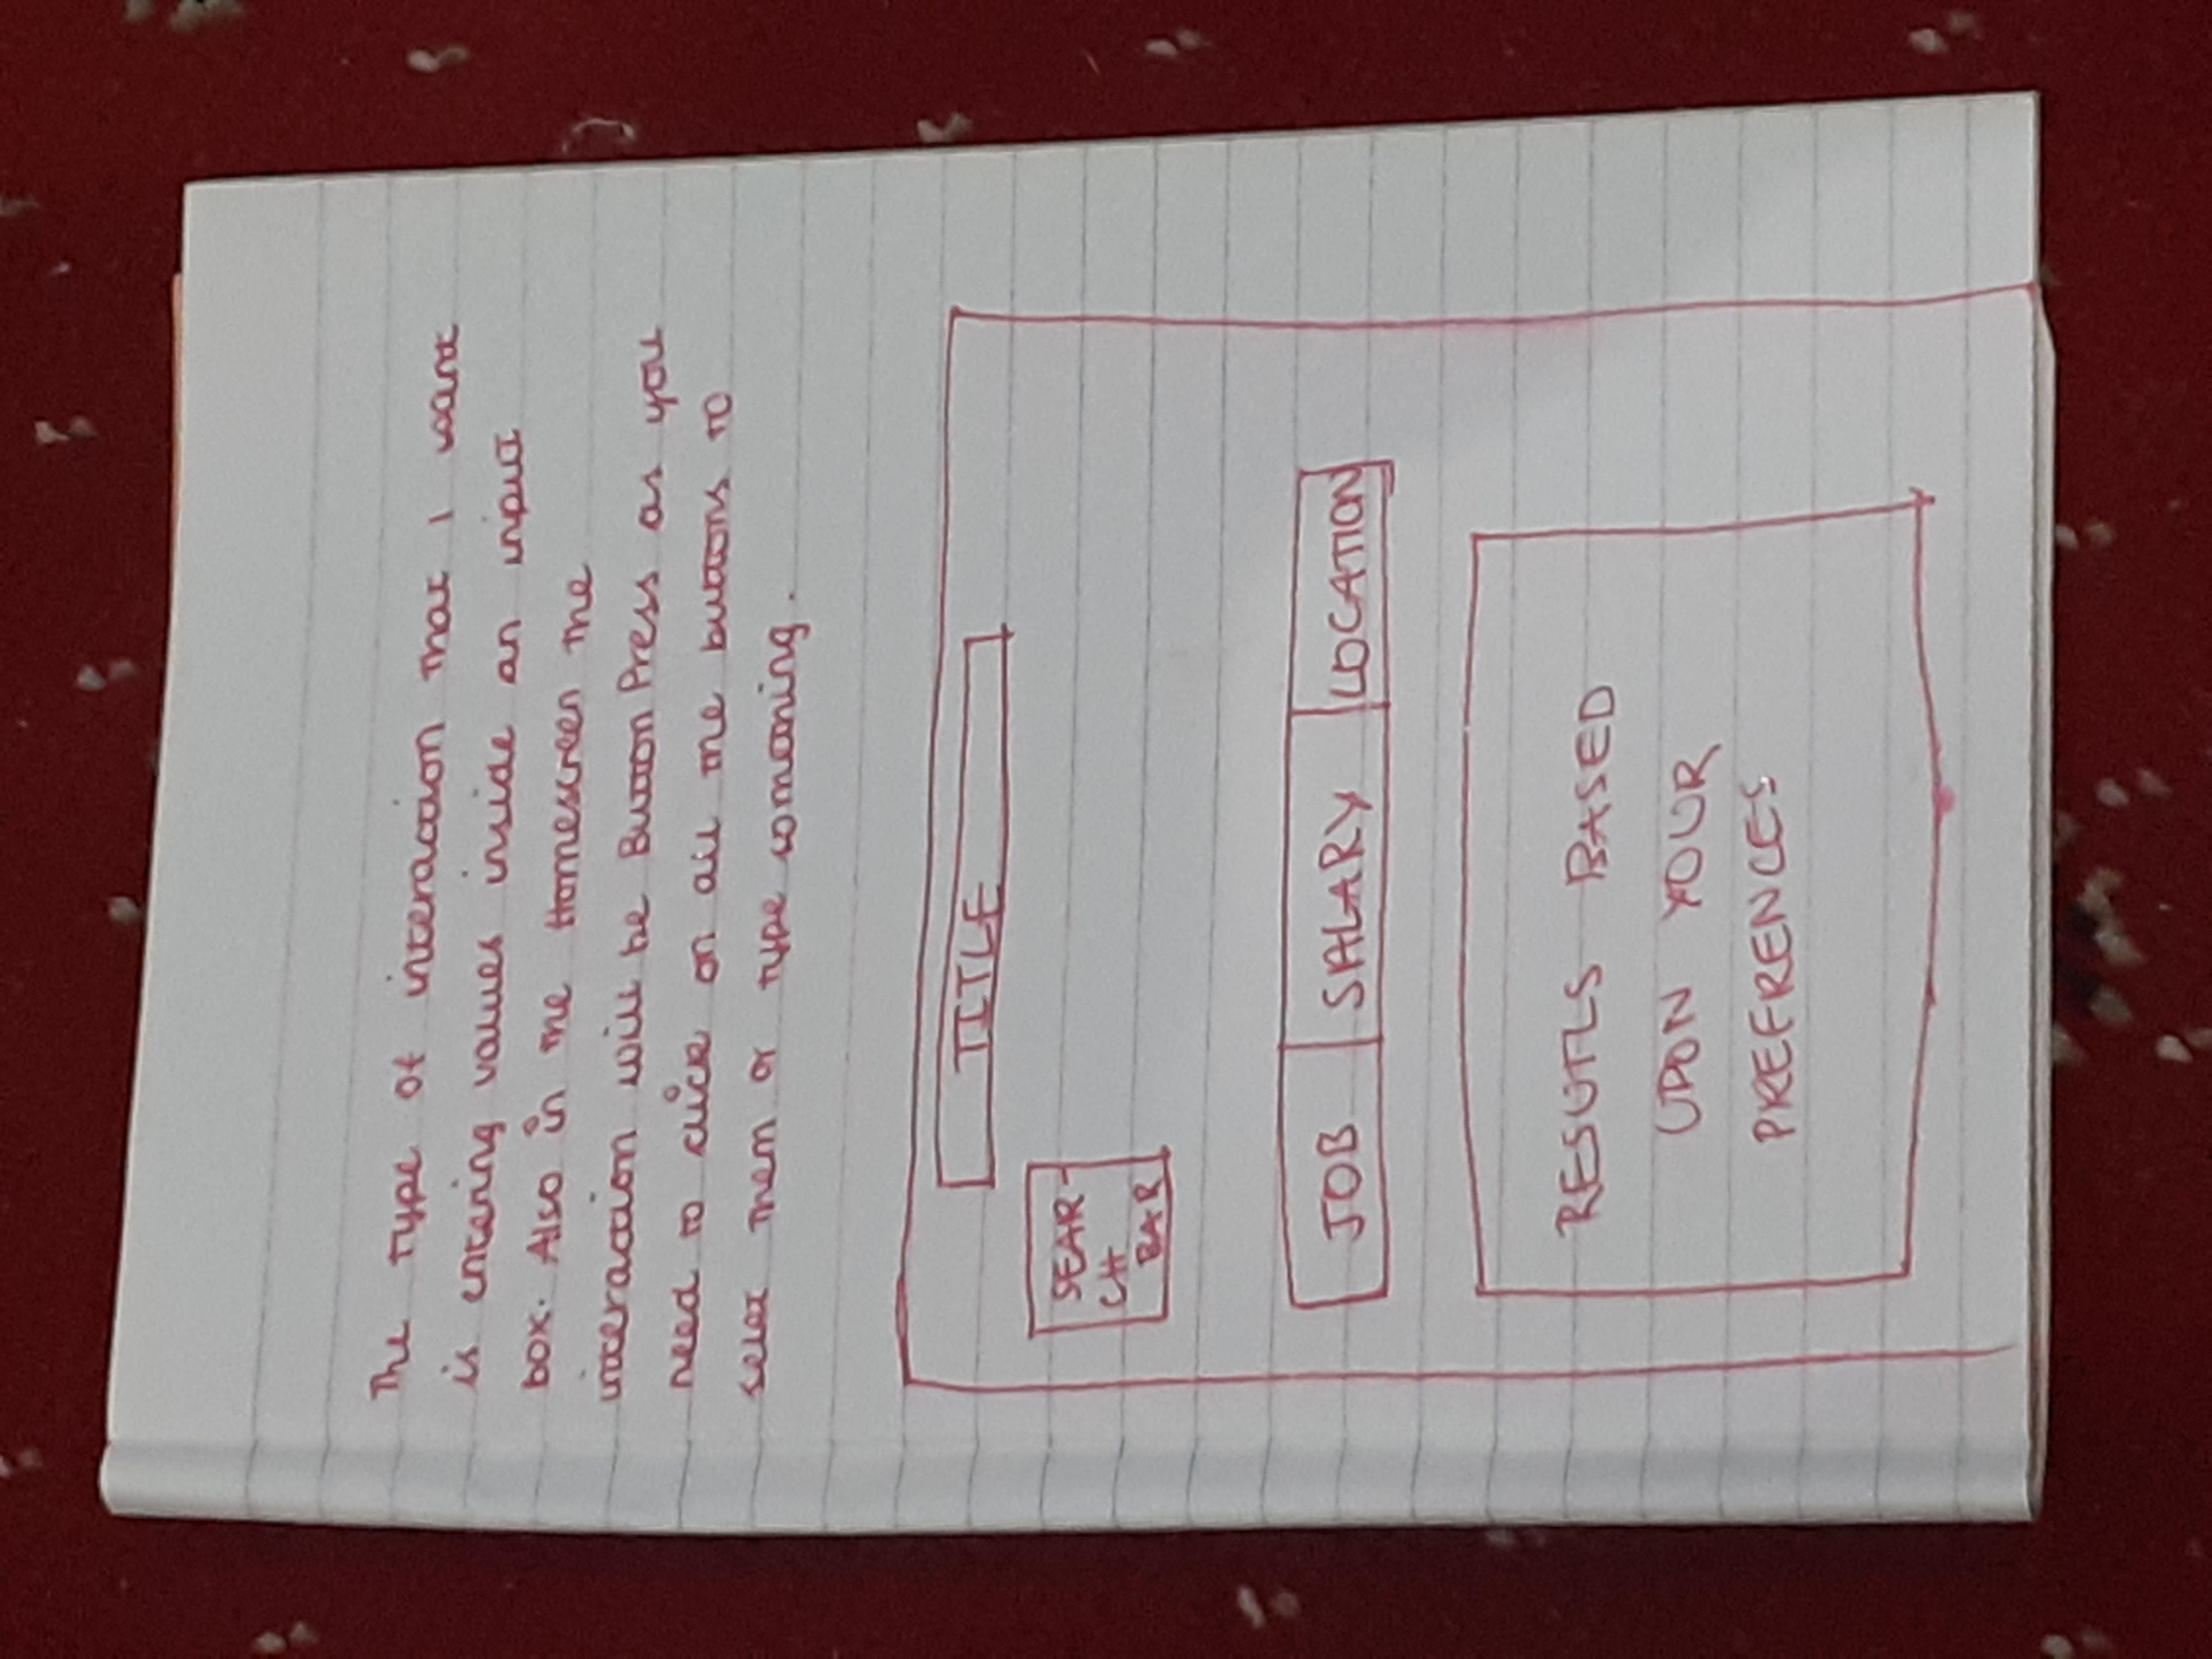 The type of interaction that I want
is entering values inside an input
box. Also in the Homescreen the
interaction will be Button Press as you
need to click on all the buttons to
select them or type somthing.
TITLE
SEAR-
CH
BAR
JOB SALARY LOCATION
RESUTLS BASED
UPON YOUR
PREFRENCES